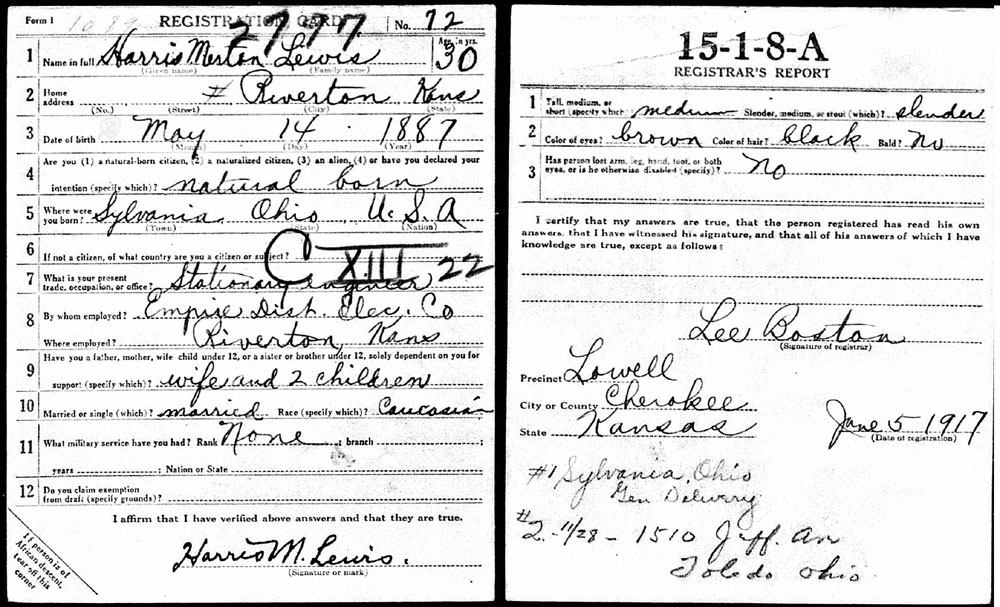 Form 1 1089 REGISTRATION CARD No. 72
2777
1 Name in full Harris Merton Lewis Age, in yrs. 30
(Given name) (Family name)
2 Home address # Riverton Kans
(No.) (Street) (City) (State)
3 Date of birth May 14 1887
(Month) (Day) (Year)
4 Are you (1) a natural-born citizen, (2) a naturalized citizen, (3) an alien, (4) or have you declared your
intention (specify which)? natural born
5 Where were you born? Sylvania Ohio U.S.A
(Town) (State) (Nation)
6 If not a citizen, of what country are you a citizen or subject?
C XIII 22
7 What is your present trade, occupation, or office? Stationary engineer
8 By whom employed? Empire Dist. Elec. Co
Where employed? Riverton, Kans
9 Have you a father, mother, wife child under 12, or a sister or brother under 12, solely dependent on you for
support (specify which)? wife and 2 children
10 Married or single (which)? married Race (specify which)? Caucasian
11 What military service have you had? Rank None ; branch ;
years ; Nation or State
12 Do you claim exemption
from draft (specify grounds)?
I affirm that I have verified above answers and that they are true.
Harris M. Lewis.
(Signature or mark)
If person is of
African descent,
tear off this
corner
15-1-8-A
REGISTRAR'S REPORT
1 Tall, medium, or
short (specify which) medium Slender, medium, or stout (which)? slender
2 Color of eyes? brown Color of hair? black Bald? No
3 Has person lost arm, leg, hand, foot, or both
eyes, or is he otherwise disabled (specify)? No
I certify that my answers are true, that the person registered has read his own
answers, that I have witnessed his signature, and that all of his answers of which I have
knowledge are true, except as follows:
Lee Boston
(Signature of registrar)
Precinct Lowell
City or County Cherokee
State Kansas June 5 1917
(Date of registration)
#1 Sylvania, Ohio
Gen Delivery
#2. - 11/28 - 1510 Jeff. Av
Toledo Ohio